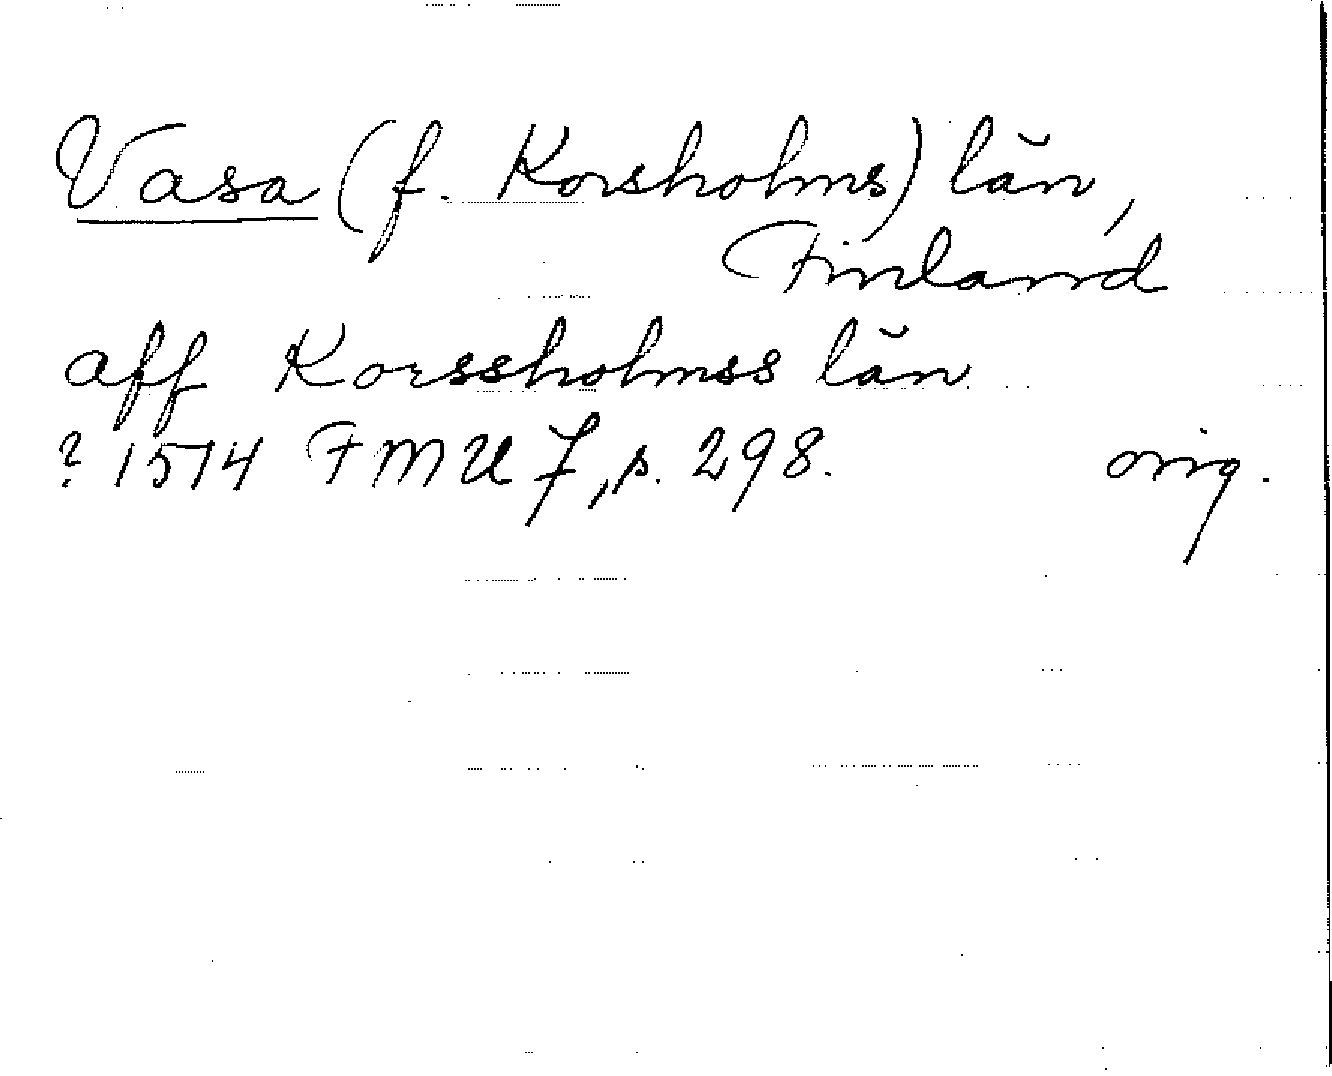 Vasa (f. Korsholms) län,
Finland
aff Korssholmss län
? 1514 FMU 7, s. 298. orig.